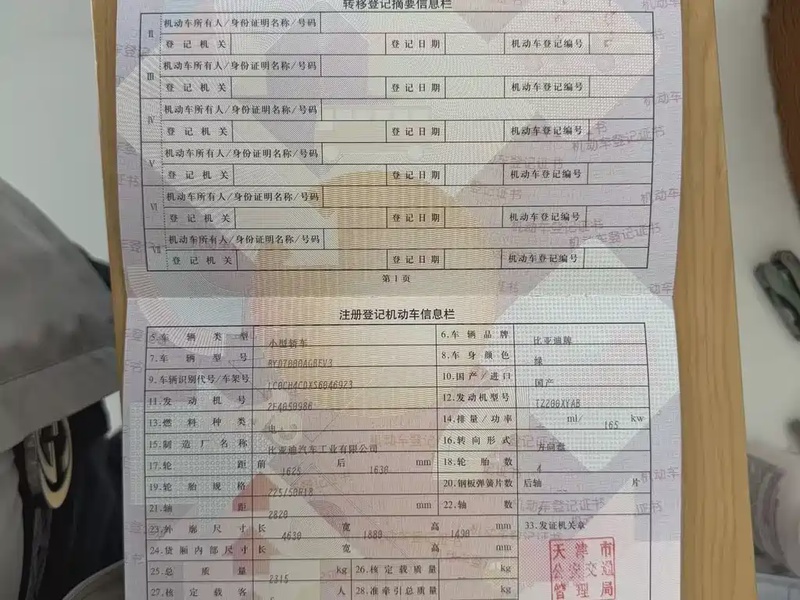 转移登记摘要信息栏
Ⅱ 机动车所有人/身份证明名称/号码
登记机关 登记日期 机动车登记编号
Ⅲ 机动车所有人/身份证明名称/号码
登记机关 登记日期 机动车登记编号
Ⅳ 机动车所有人/身份证明名称/号码
登记机关 登记日期 机动车登记编号
Ⅴ 机动车所有人/身份证明名称/号码
登记机关 登记日期 机动车登记编号
Ⅵ 机动车所有人/身份证明名称/号码
登记机关 登记日期 机动车登记编号
Ⅶ 机动车所有人/身份证明名称/号码
登记机关 登记日期 机动车登记编号
第1页
注册登记机动车信息栏
5.车辆类型 小型轿车 6.车辆品牌 比亚迪牌
7.车辆型号 8.车身颜色 绿
9.车辆识别代号/车架号 10.国产/进口 国产
11.发动机号 12.发动机型号 TZ200XYAB
13.燃料种类 电 14.排量/功率 ml/ 165 kw
15.制造厂名称 比亚迪汽车工业有限公司 16.转向形式 方向盘
17.轮距 前 1625 后 1630 mm 18.轮胎数 4
19.轮胎规格 225/50R18 20.钢板弹簧片数 后轴 片
21.轴距 2820 mm 22.轴数
23.外廓尺寸 长 4630 宽 1880 高 1490 mm 33.发证机关章
24.货厢内部尺寸 长 宽 高 mm
25.总质量 2315 kg 26.核定载质量 kg
27.核定载客 人 28.准牵引总质量 kg
天津市
公安交
管理局